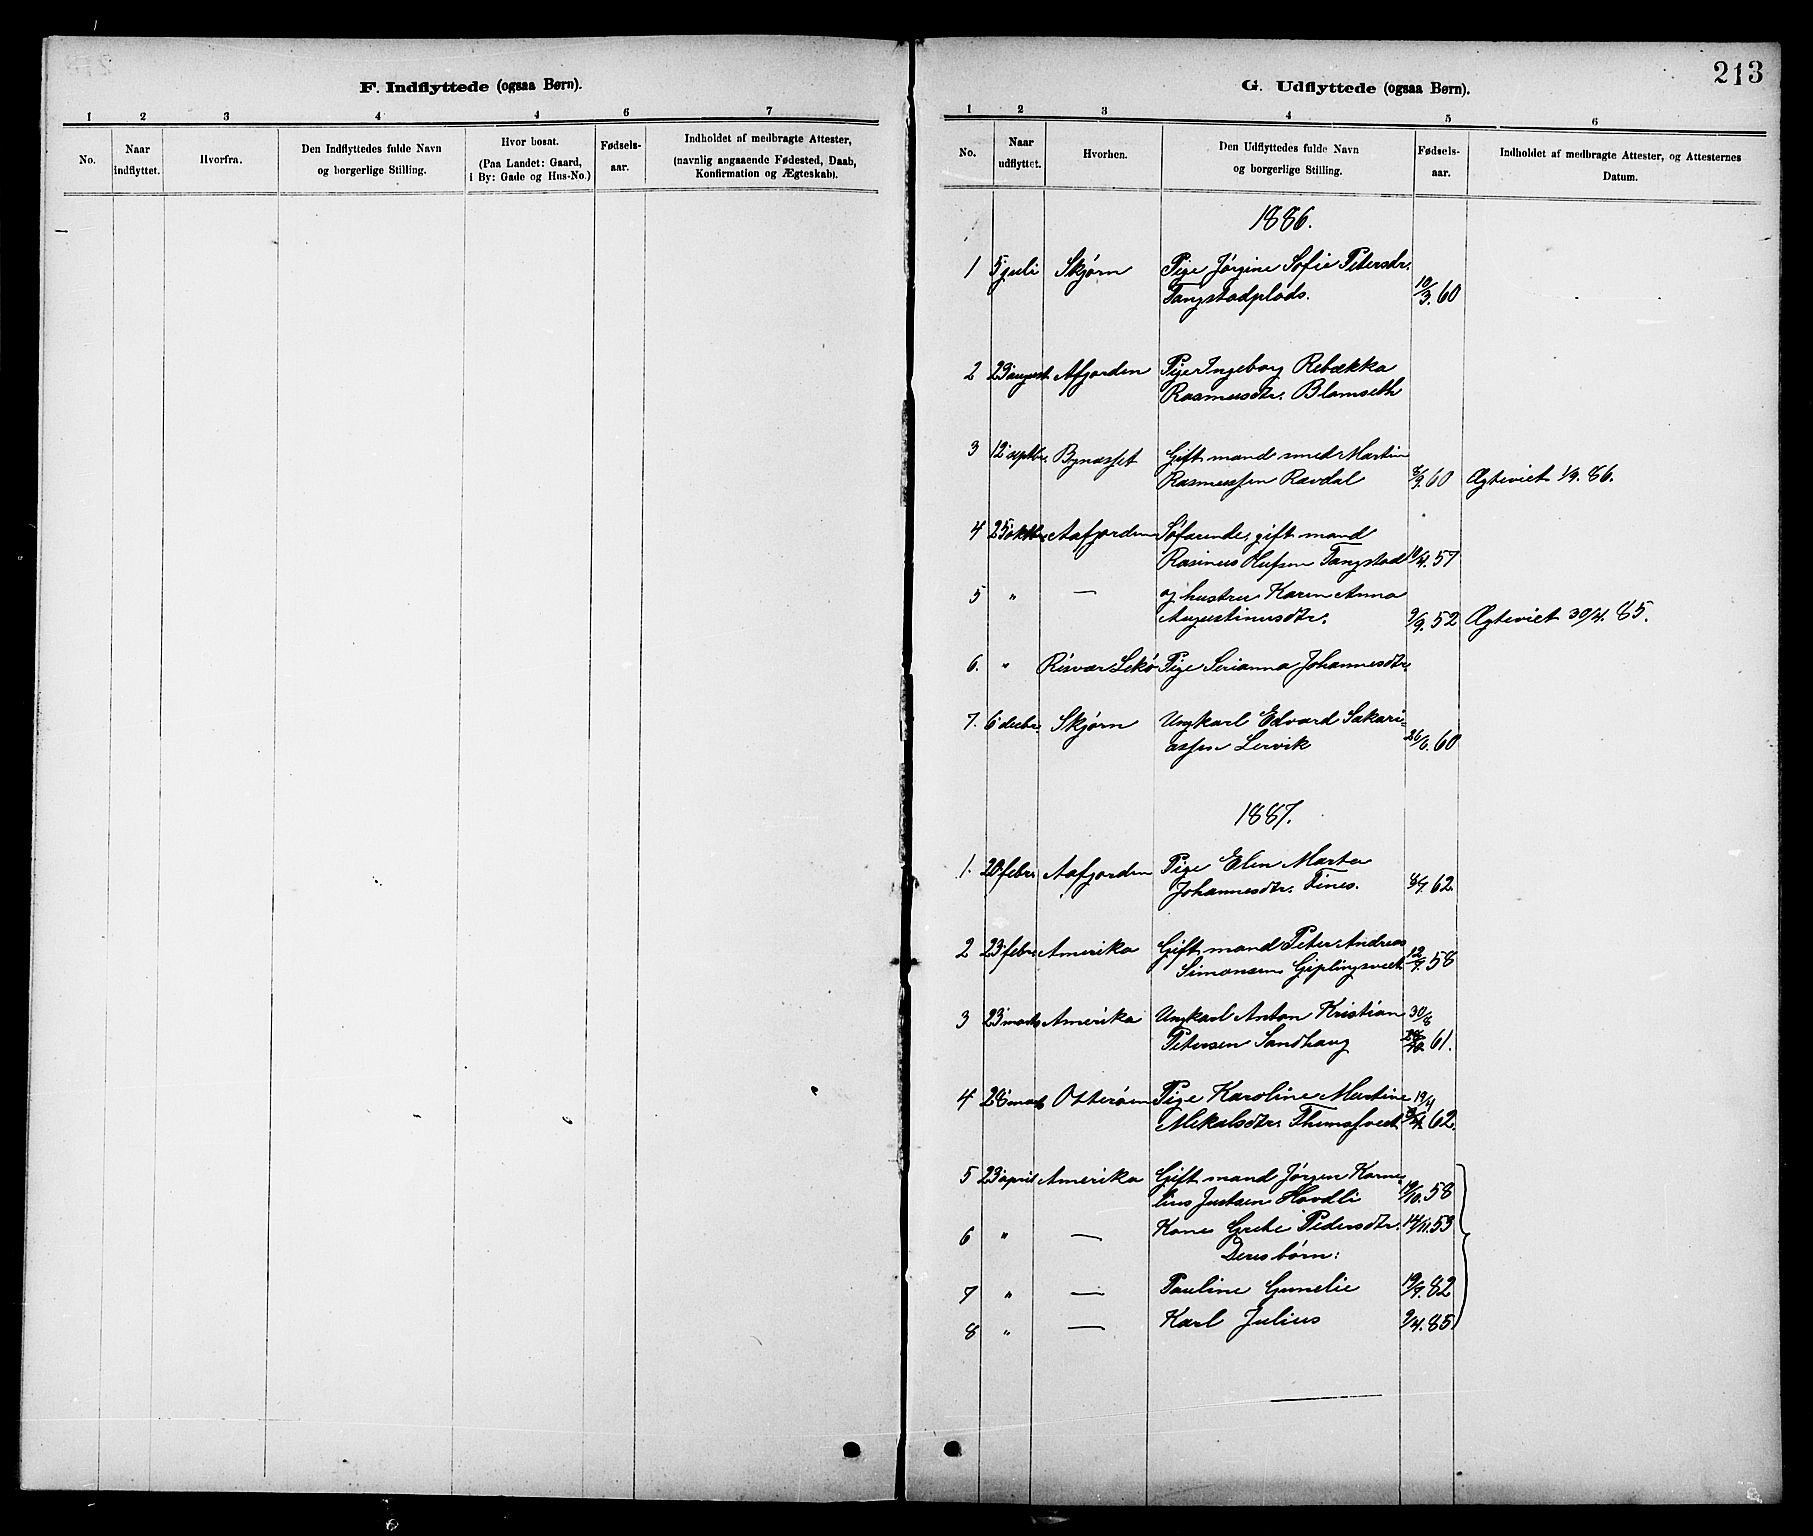 F. Indflyttede (ogsaa Børn).
1 2 3 4 4 6 7
No.
Naar indflyttet.
Hvorfra.
Den Indflyttedes fulde Navn
og borgerlige Stilling.
Hvor bosat.
(Paa Landet: Gaard,
i By: Gade og Hus-No.)
Fødsels-
aar.
Indholdet af medbragte Attester,
(navnlig angaaende Fødested, Daab,
Konfirmation og Ægteskab).
213
G. Udflyttede (ogsaa Børn).
1 2 3 4 5 6
No.
Naar
udflyttet.
Hvorhen.
Den Udflyttedes fulde Navn
og borgerlige Stilling.
Fødsels-
aar.
Indholdet af medbragte Attester, og Attesternes
Datum.
1886.
1 5 juli Skjørn Pige Jørgine Sofie Petersdr.
Tangstadplads. 10/3. 60
2 23 august Afjorden Pige Ingeborg Rebækka
Rasmusdtr. Blamseth
3 12 septbr. Bynæsset Gift mand smed Martin
Rasmussen Ravdal 8/9. 60 Ægteviet 1/9. 86.
4 25 oktbr. Aafjorden Søfarende, gift mand
Rasmus Olufsen Tangstad 10/4. 57
5 " — og hustru Karen Anna
Augustinusdtr. 9/9. 52 Ægteviet 30/4. 85.
6. " Risvær Lekø Pige Serianna Johannesdtr.
7. 6 decbr. Skjørn Ungkarl Edvard Sakari-
assen Lervik 26/6. 60
1887.
1. 20 febr. Aafjorden Pige Elen Marta
Johannesdtr. Tines. 8/7. 62.
2 23 febr. Amerika Gift mand Peter Andreas
Simonsen Giplingsveet 12/9. 58
3 23 marts Amerika Ungkarl Anton Kristian 30/8
Petersen Sandhaug 61.
4 28 marts Otterøen Pige Karoline Martine 19/4
Mikalsdtr. Thomasveet 62.
5 23 april Amerika Gift mand Jørgen Korne-
lius Justsen Hovdli 19/10. 58
6 " — Kone Grete Pedersdtr. 14/11. 53
Deres børn:
7 " — Pauline Gunelie 19/9. 82
8 " — Karl Julius 9/4. 85.